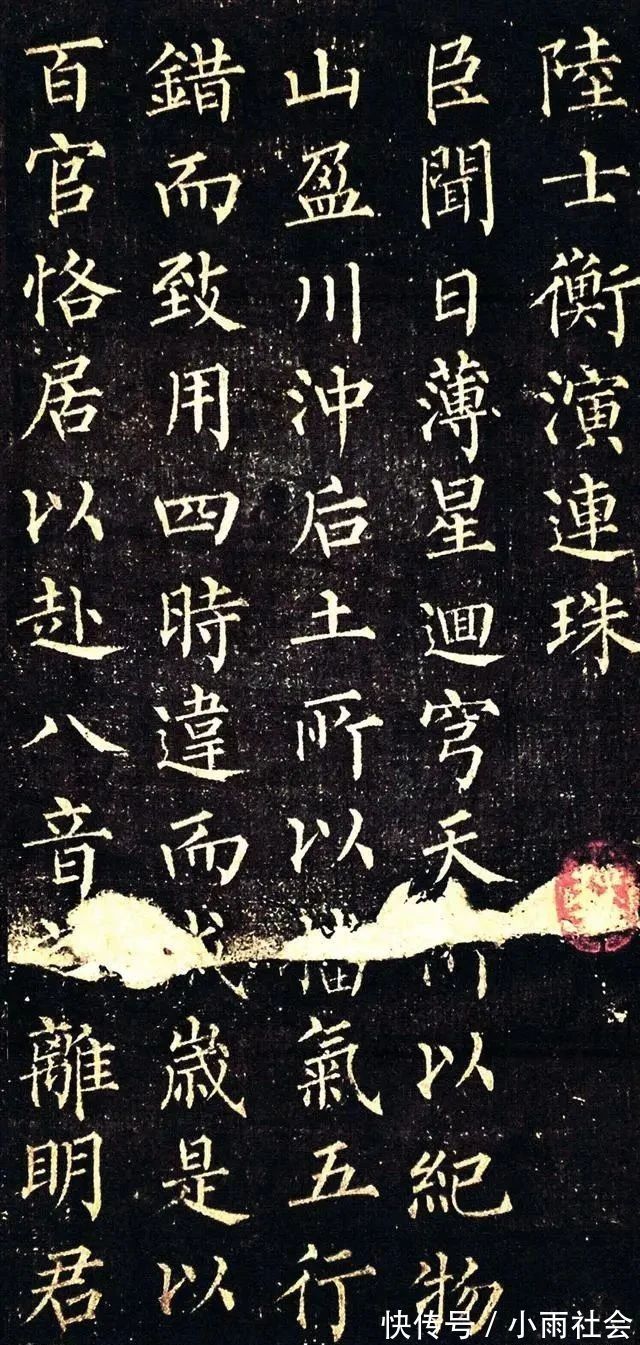 陸士衡演連珠
臣聞日薄星迴穹天所以紀物
山盈川沖后土所以播氣五行
錯而致用四時違而成歲是以
百官恪居以赴八音離明君
快传号/小雨社会